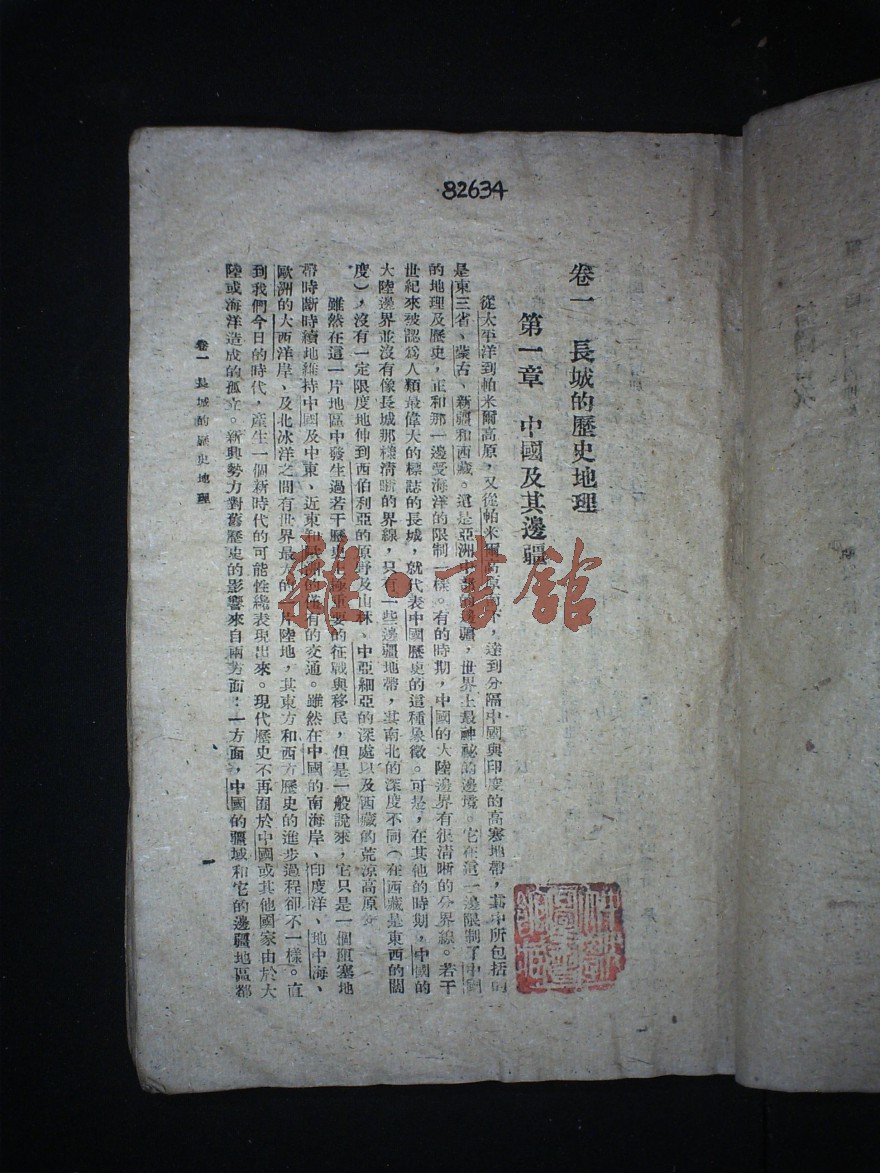 82634
卷一 長城的歷史地理
第一章 中國及其邊疆
從太平洋到帕米爾高原，又從帕米爾高原而下，達到分隔中國與印度的高寒地帶，其中所包括的
是東三省、蒙古、新疆和西藏。這是亞洲中部的邊疆，世界上最神祕的邊境。它在這一邊限制了中國
的地理及歷史，正和那一邊受海洋的限制一樣。有的時期，中國的大陸邊界有很清晰的分界線。若干
世紀來被認爲人類最偉大的標誌的長城，就代表中國歷史的這種象徵。可是，在其他的時期，中國的
大陸邊界並沒有像長城那樣清晰的界線，只有一些邊疆地帶，其南北的深度不同（在西藏是東西的闊
度），沒有一定限度地伸到西伯利亞的原野及山林、中亞細亞的深處以及西藏的荒凉高原。
雖然在這一片地區中發生過若干歷史上極重要的征戰與移民，但是一般說來，它只是一個閉塞地
帶時斷時續地維持中國及中東、近東和歐洲的僅有的交通。雖然在中國的南海岸、印度洋、地中海、
歐洲的大西洋岸、及北冰洋之間有世界最大的一片陸地，其東方和西方歷史的進步過程卻不一樣。直
到我們今日的時代，產生一個新時代的可能性纔表現出來。現代歷史不再關於中國或其他國家由於大
陸或海洋造成的孤立。新興勢力對舊歷史的影響來自兩方面：一方面，中國的疆域和它的邊疆地區都
卷一 長城的歷史地理
雜·書館